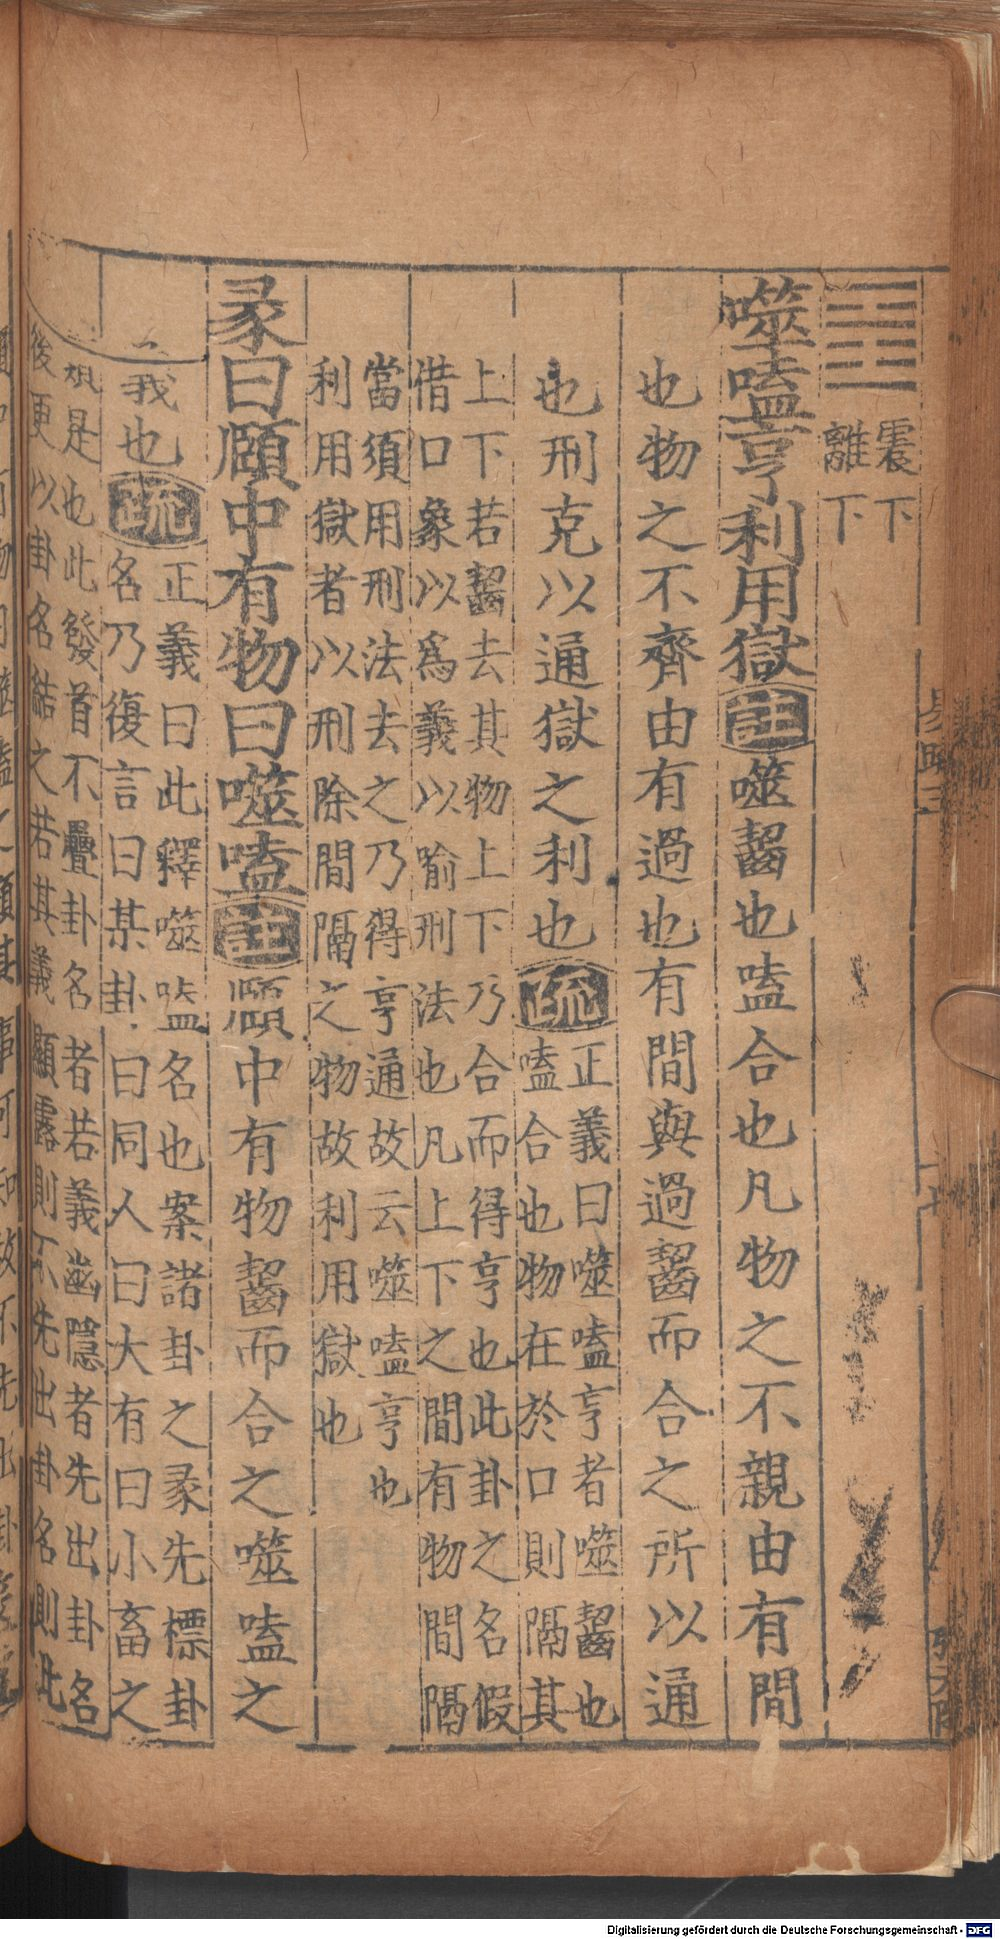 震下
離下
噬嗑亨利用獄註噬齧也嗑合也凡物之不親由有間
也物之不齊由有過也有間與過齧而合之所以通
也刑克以通獄之利也疏正義曰噬嗑亨者噬齧也
嗑合也物在於口則隔其
上下若齧去其物上下乃合而得亨也此卦之名假
借口象以爲義以喻刑法也凡上下之間有物間隔
當須用刑法去之乃得亨通故云噬嗑亨也
利用獄者以刑除間隔之物故利用獄也
彖曰頤中有物曰噬嗑註頤中有物齧而合之噬嗑之
義也疏正義曰此釋噬嗑名也案諸卦之彖先標卦
名乃復言曰某卦曰同人曰大有曰小畜之
是也此發首不疊卦名者若義幽隱者先出卦名
後更以卦名結之若其義顯露則不先出卦名則此
Digitalisierung gefördert durch die Deutsche Forschungsgemeinschaft - DFG